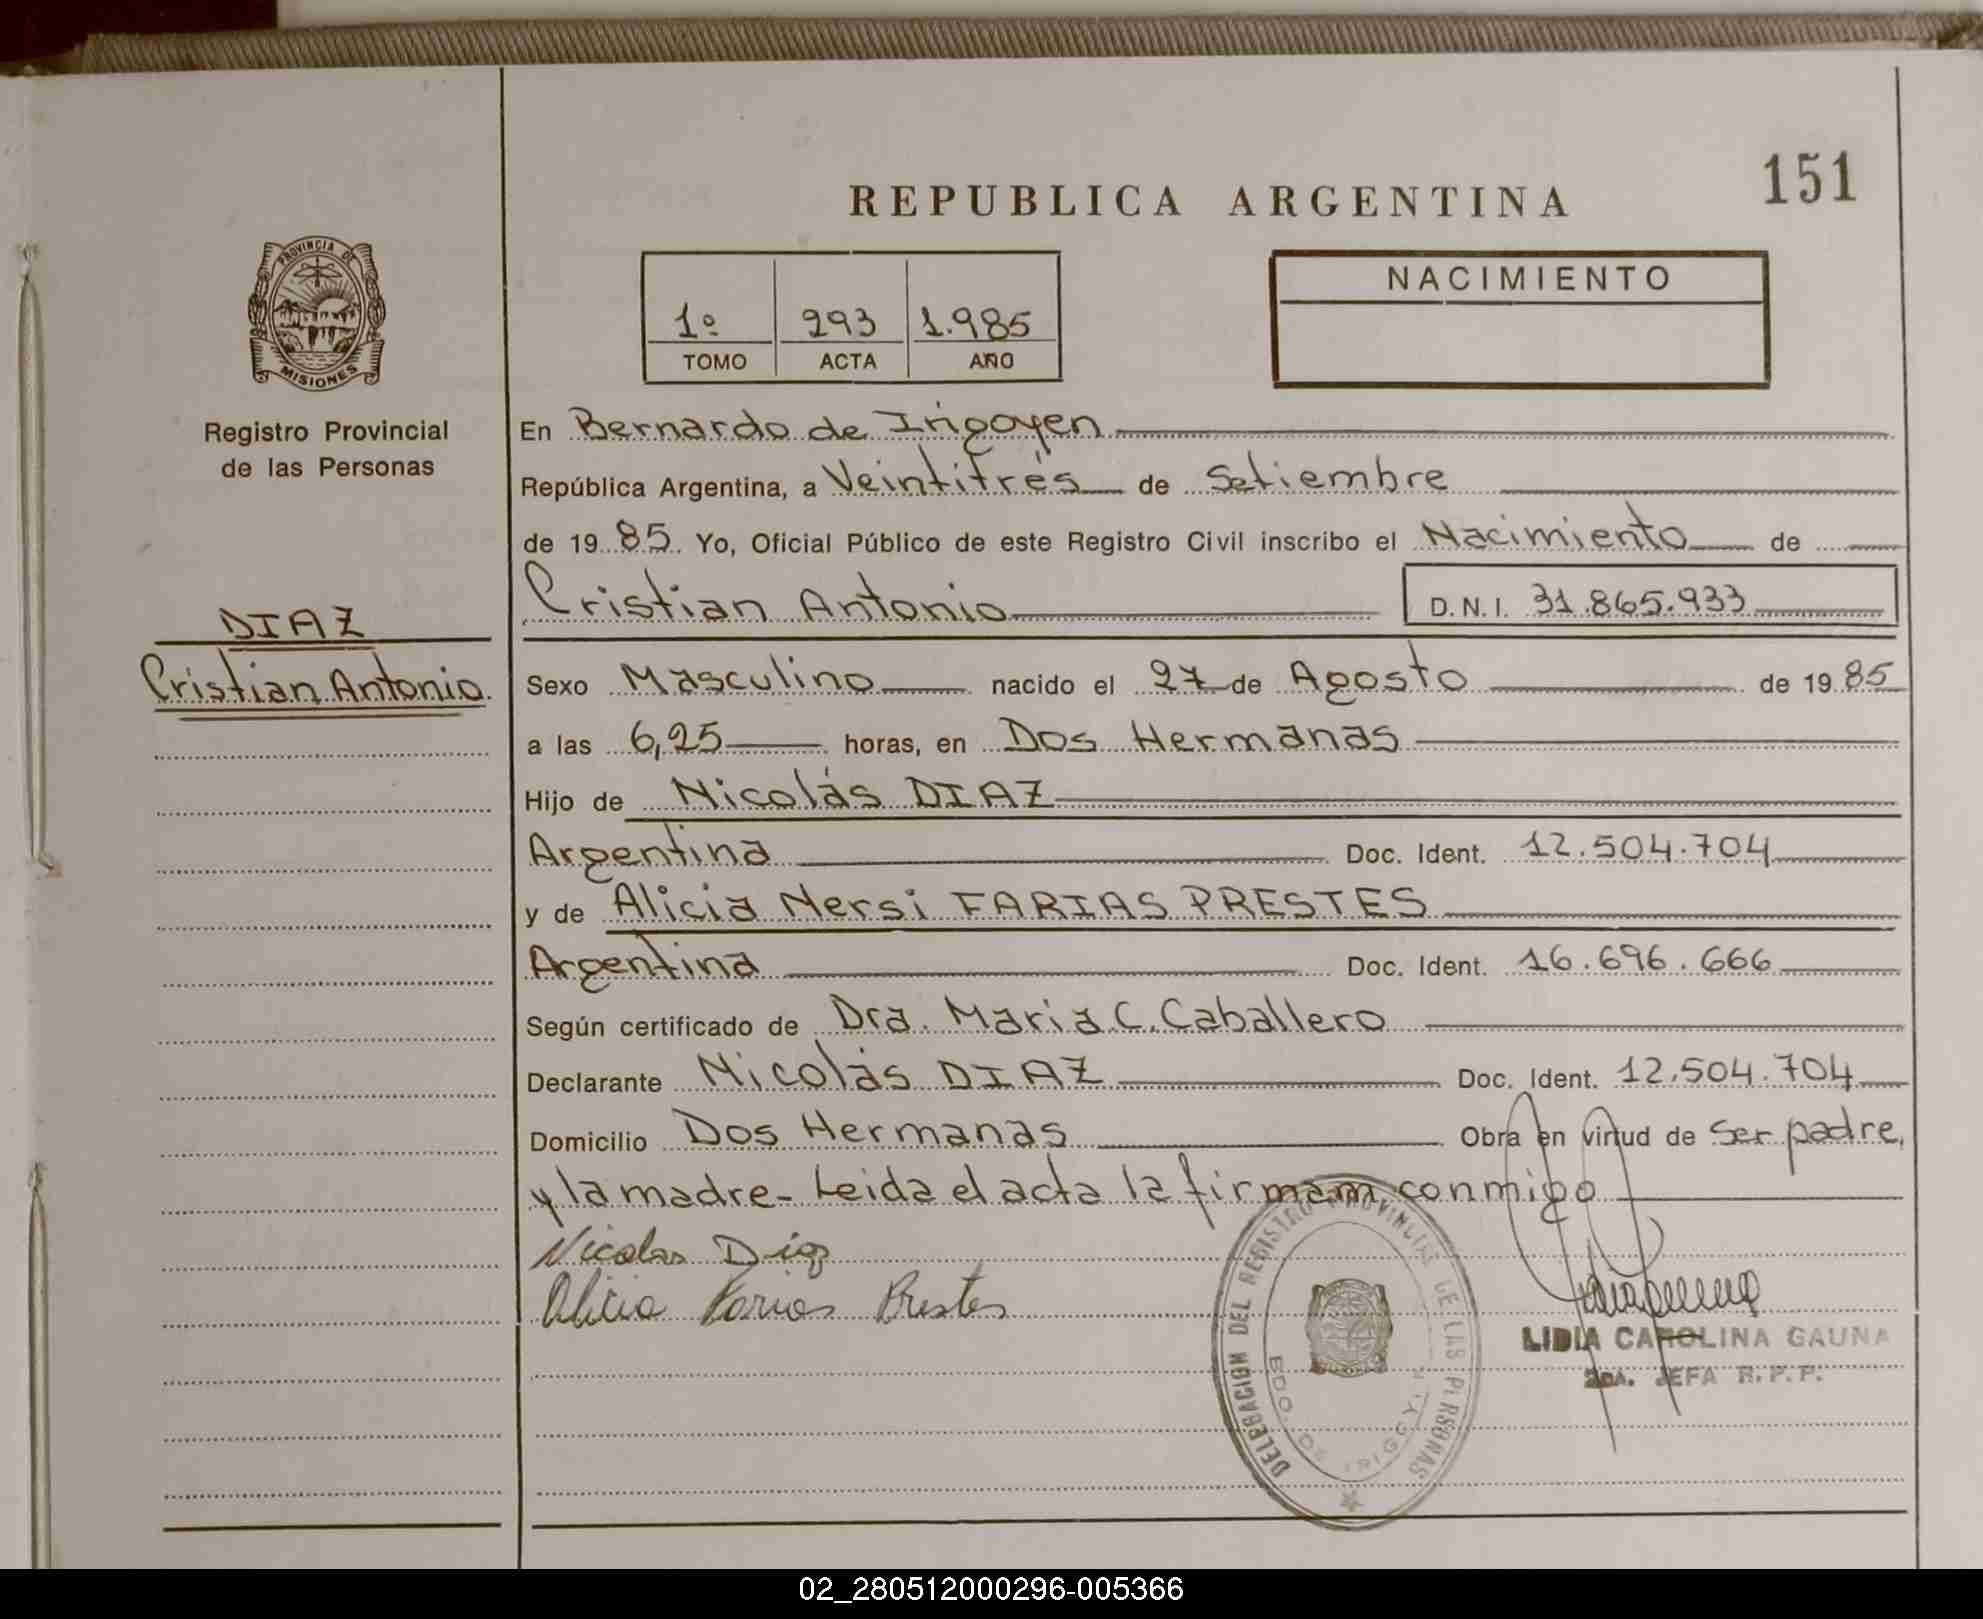 151
REPUBLICA ARGENTINA
NACIMIENTO
1º 293 1.985
TOMO ACTA AÑO
PROVINCIA DE
MISIONES
Registro Provincial
de las Personas
DIAZ
Cristian Antonio.
En Bernardo de Irigoyen
República Argentina, a Veintitrés de Setiembre
de 1985 Yo, Oficial Público de este Registro Civil inscribo el Nacimiento de
Cristian Antonio D.N.I. 31.865.933
Sexo Masculino nacido el 27 de Agosto de 1985
a las 6,25 horas, en Dos Hermanas
Hijo de Nicolás DIAZ
Argentina Doc. Ident. 12.504.704
y de Alicia Nersi FARIAS PRESTES
Argentina Doc. Ident. 16.696.666
Según certificado de Dra. Maria C. Caballero
Declarante Nicolás DIAZ Doc. Ident. 12.504.704
Domicilio Dos Hermanas Obra en virtud de ser padre,
y la madre- Leida el acta la firmam conmigo
Nicolas Diaz
Alicia Farias Prestes
DELEGACION DEL REGISTRO PROVINCIAL DE LAS PERSONAS
BDO. DE IRIGOYEN
LIDIA CAROLINA GAUNA
2DA. JEFA R.P.P.
02_280512000296-005366